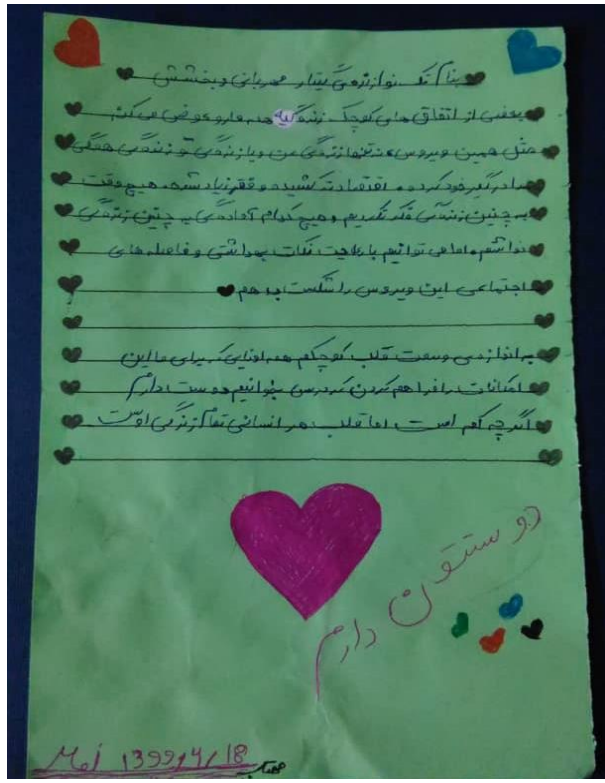 بنام تک نوازنده‌ی گیتار مهربانی و بخشش
بعضی از اتفاق های کوچک زندگیه همه مارو عوض می کنه
مثل همین ویروس، نه تنها زندگی من و یا زندگی تو زندگی همگی
ما درگیر خود کرده و اقتصاد ته کشیده و فقر زیاد شده، هیچ وقت
به چنین زندگی فکر نکردیم و هیچ کدام آمادگی چنین زندگی
نداشتیم، اما می توانیم با رعایت نکات بهداشتی و فاصله های
اجتماعی این ویروس را شکست بدهیم
به اندازه‌ی وسعت قلب کوچکم همه اونایی که برای ما این
امکانات را فراهم کردن که درس بخوانیم دوست دارم
اگرچه کم است اما قلب هر انسانی تمام زندگی اوست
دوستتون دارم
1399/6/18